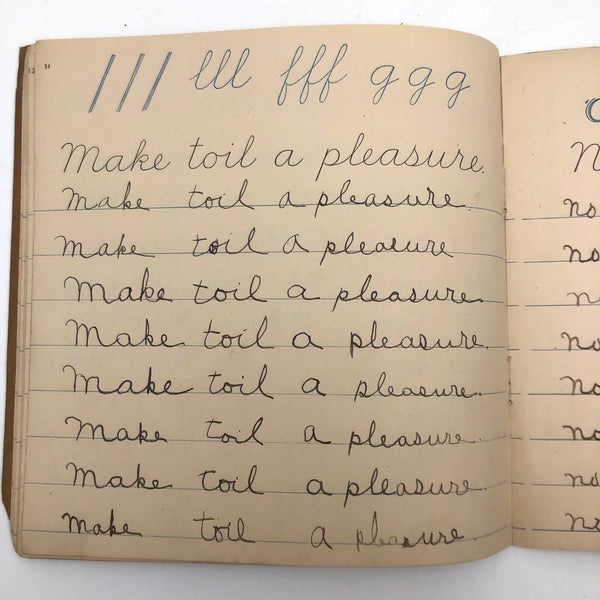 /// lll fff ggg
Make toil a pleasure.
Make toil a pleasure.
Make toil a pleasure
Make toil a pleasure.
Make toil a pleasure.
Make toil a pleasure.
Make toil a pleasure.
Make toil a pleasure.
Make toil a pleasure.